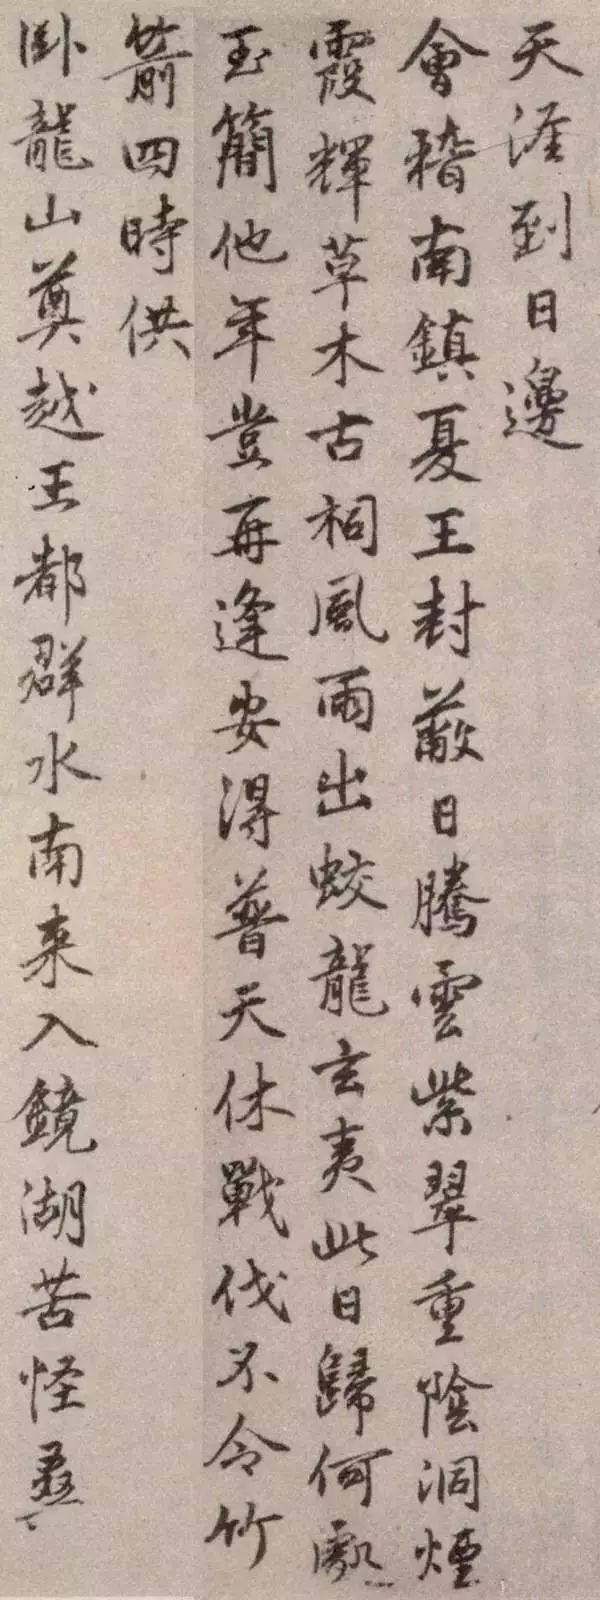 天涯到日邊
會稽南鎮夏王封蔽日騰雲紫翠重陰洞煙
霞輝草木古祠風雨出蛟龍玄夷此日歸何處
玉簡他年豈再逢安得普天休戰伐不令竹
箭四時供
臥龍山奠越王都群水南來入鏡湖苦怪